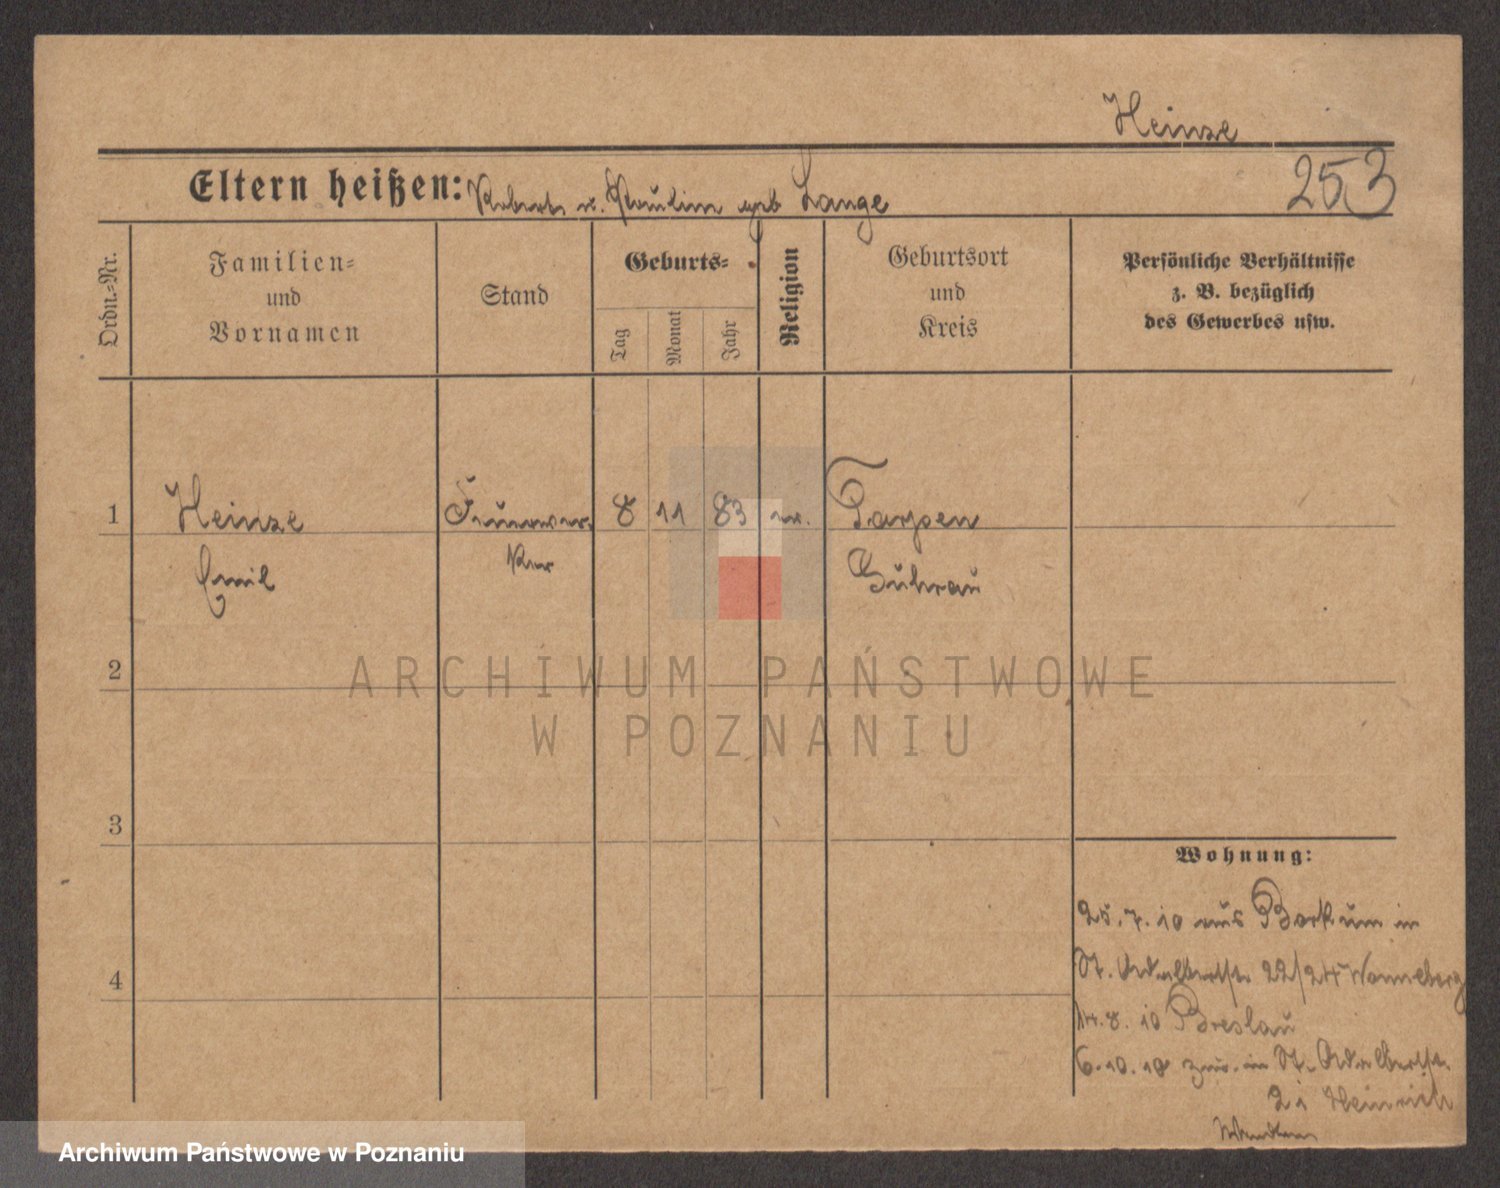 Heinze
Eltern heißen: Robert u. Paulin geb Lange
253
Ordn.-Nr.
Familien=
und
Vornamen
Stand
Geburts=
Tag
Monat
Jahr
Religion
Geburtsort
und
Kreis
Persönliche Verhältnisse
z. B. bezüglich
des Gewerbes usw.
1 Heinze 8 11 83 ev. Tarpen
Emil Guhrau
2
ARCHIWUM PAŃSTWOWE
W POZNANIU
3
Wohnung:
25.7.10 aus Borkum in
St. Adalbertstr. 22/24 Wonneberg
14.8.10 Breslau
6.10.10 zur. in St. Adalbertstr.
21 Heinrich
4
Archiwum Państwowe w Poznaniu